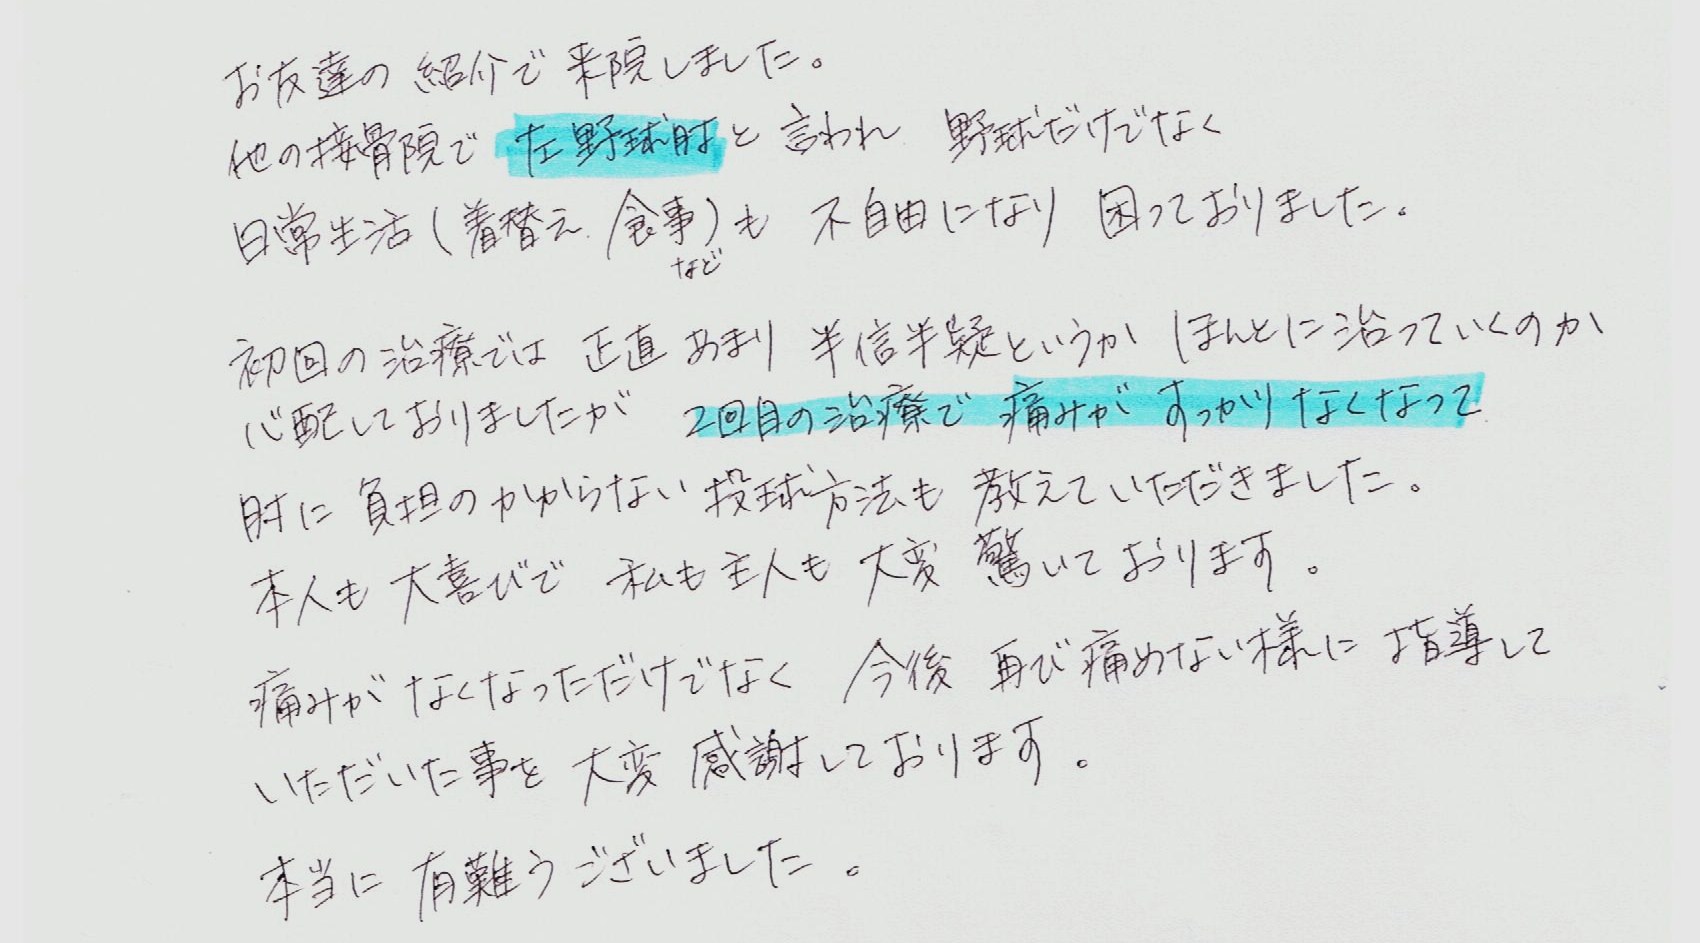 お友達の紹介で来院しました。
他の接骨院で左野球肘と言われ 野球だけでなく
日常生活(着替え、食事)も 不自由になり 困っておりました。
など
初回の治療では 正直あまり 半信半疑というか ほんとに治っていくのか
心配しておりましたが 2回目の治療で 痛みが すっかりなくなって
肘に負担のかからない投球方法も 教えていただきました。
本人も大喜びで 私も主人も 大変 驚いております。
痛みがなくなっただけでなく 今後 再び痛めない様に指導して
いただいた事を 大変 感謝しております。
本当に有難うございました。